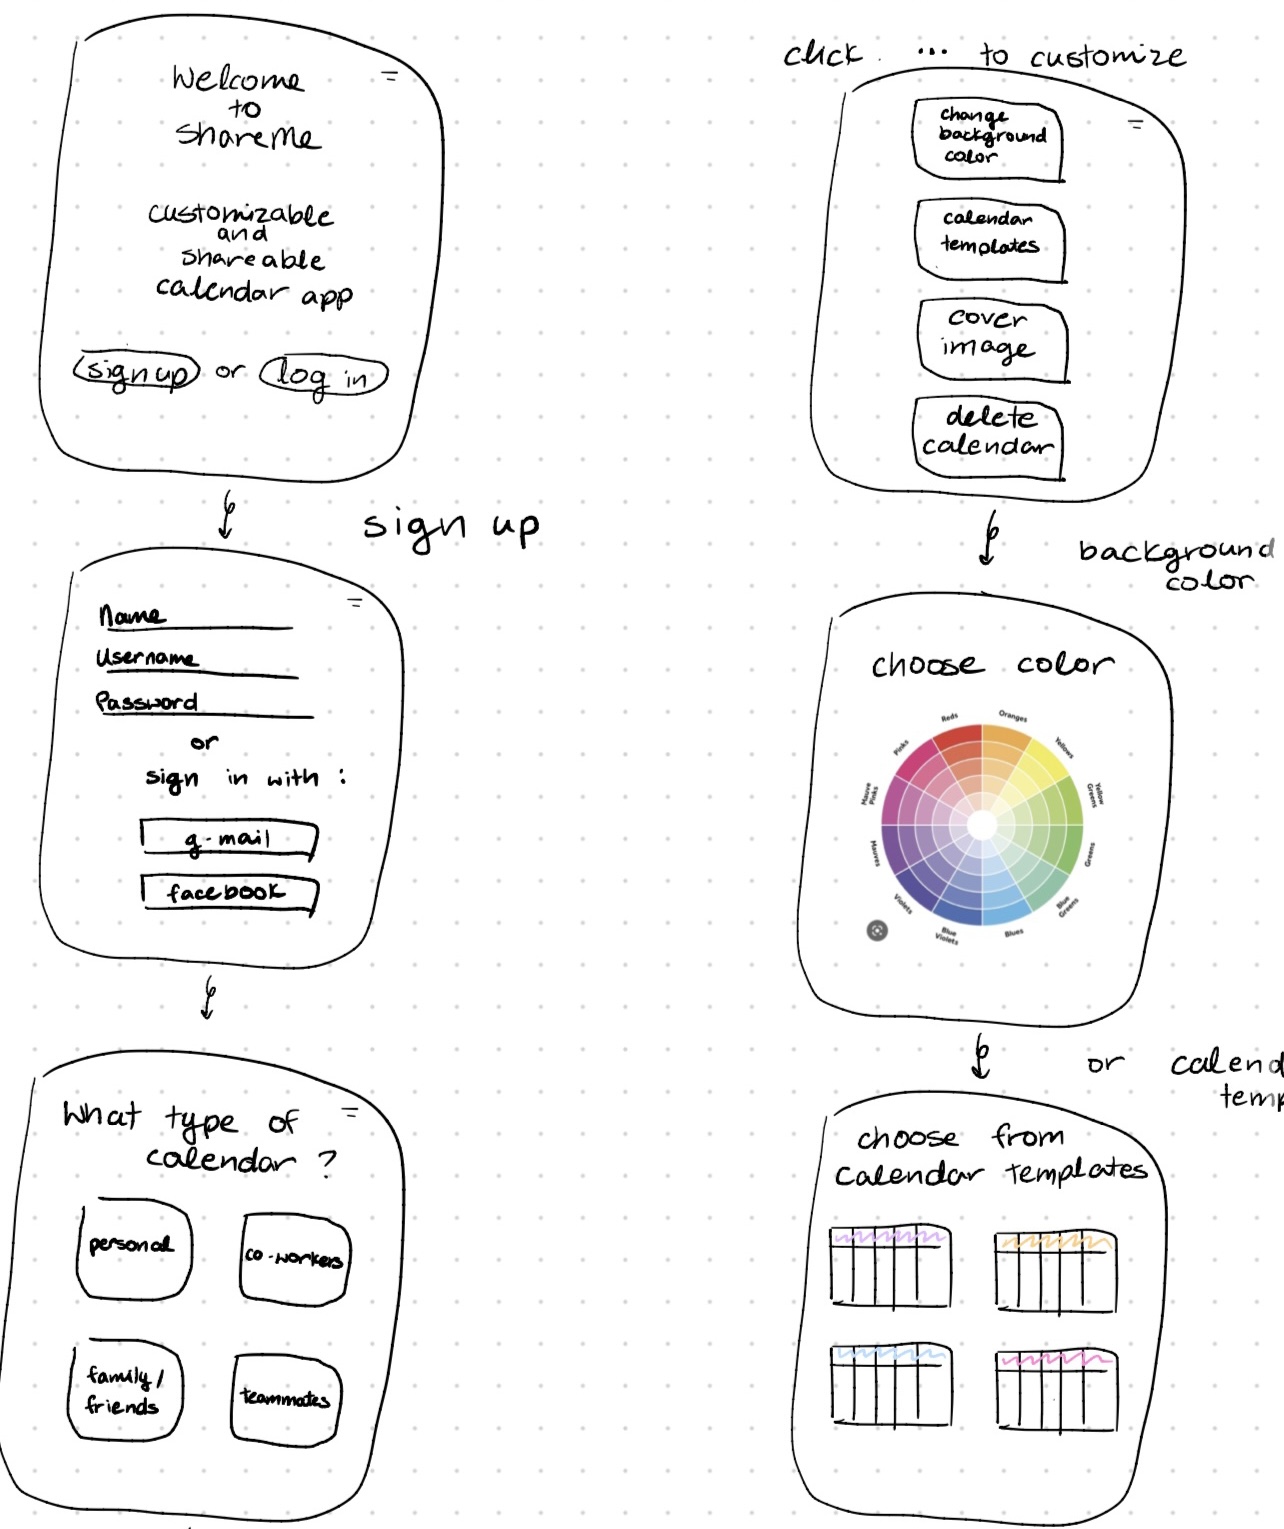 Welcome
to
ShareMe
customizable
and
shareable
calendar app
sign up or log in
sign up
Name
Username
Password
or
sign in with :
g-mail
facebook
What type of
calendar ?
personal
co-workers
family/
friends
teammates
click ... to customize
change
background
color
calendar
templates
cover
image
delete
calendar
background
color
choose color
Reds
Oranges
Yellows
Yellow
Greens
Greens
Blue
Greens
Blues
Blue
Violets
Violets
Mauves
Mauve
Pinks
Pinks
or calend
temp
choose from
calendar templates